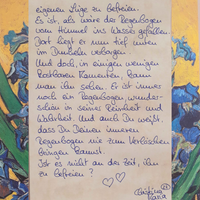 eigenen Lüge zu befreien.
Es ist, als wäre der Regenbogen
vom Himmel ins Wasser gefallen.
Dort liegt er nun tief unten
im Dunkeln verborgen.
Und doch, in einigen wenigen
kostbaren Momenten, kann
man ihn sehen. Er ist immer
noch ein Regenbogen, wunder-
schön in seiner Reinheit und
Wahrheit. Und auch Du weißt,
dass Du Deinen inneren
Regenbogen nie zum Verlöschen
bringen kannst.
Ist es nicht an der Zeit, ihn
zu befreien?